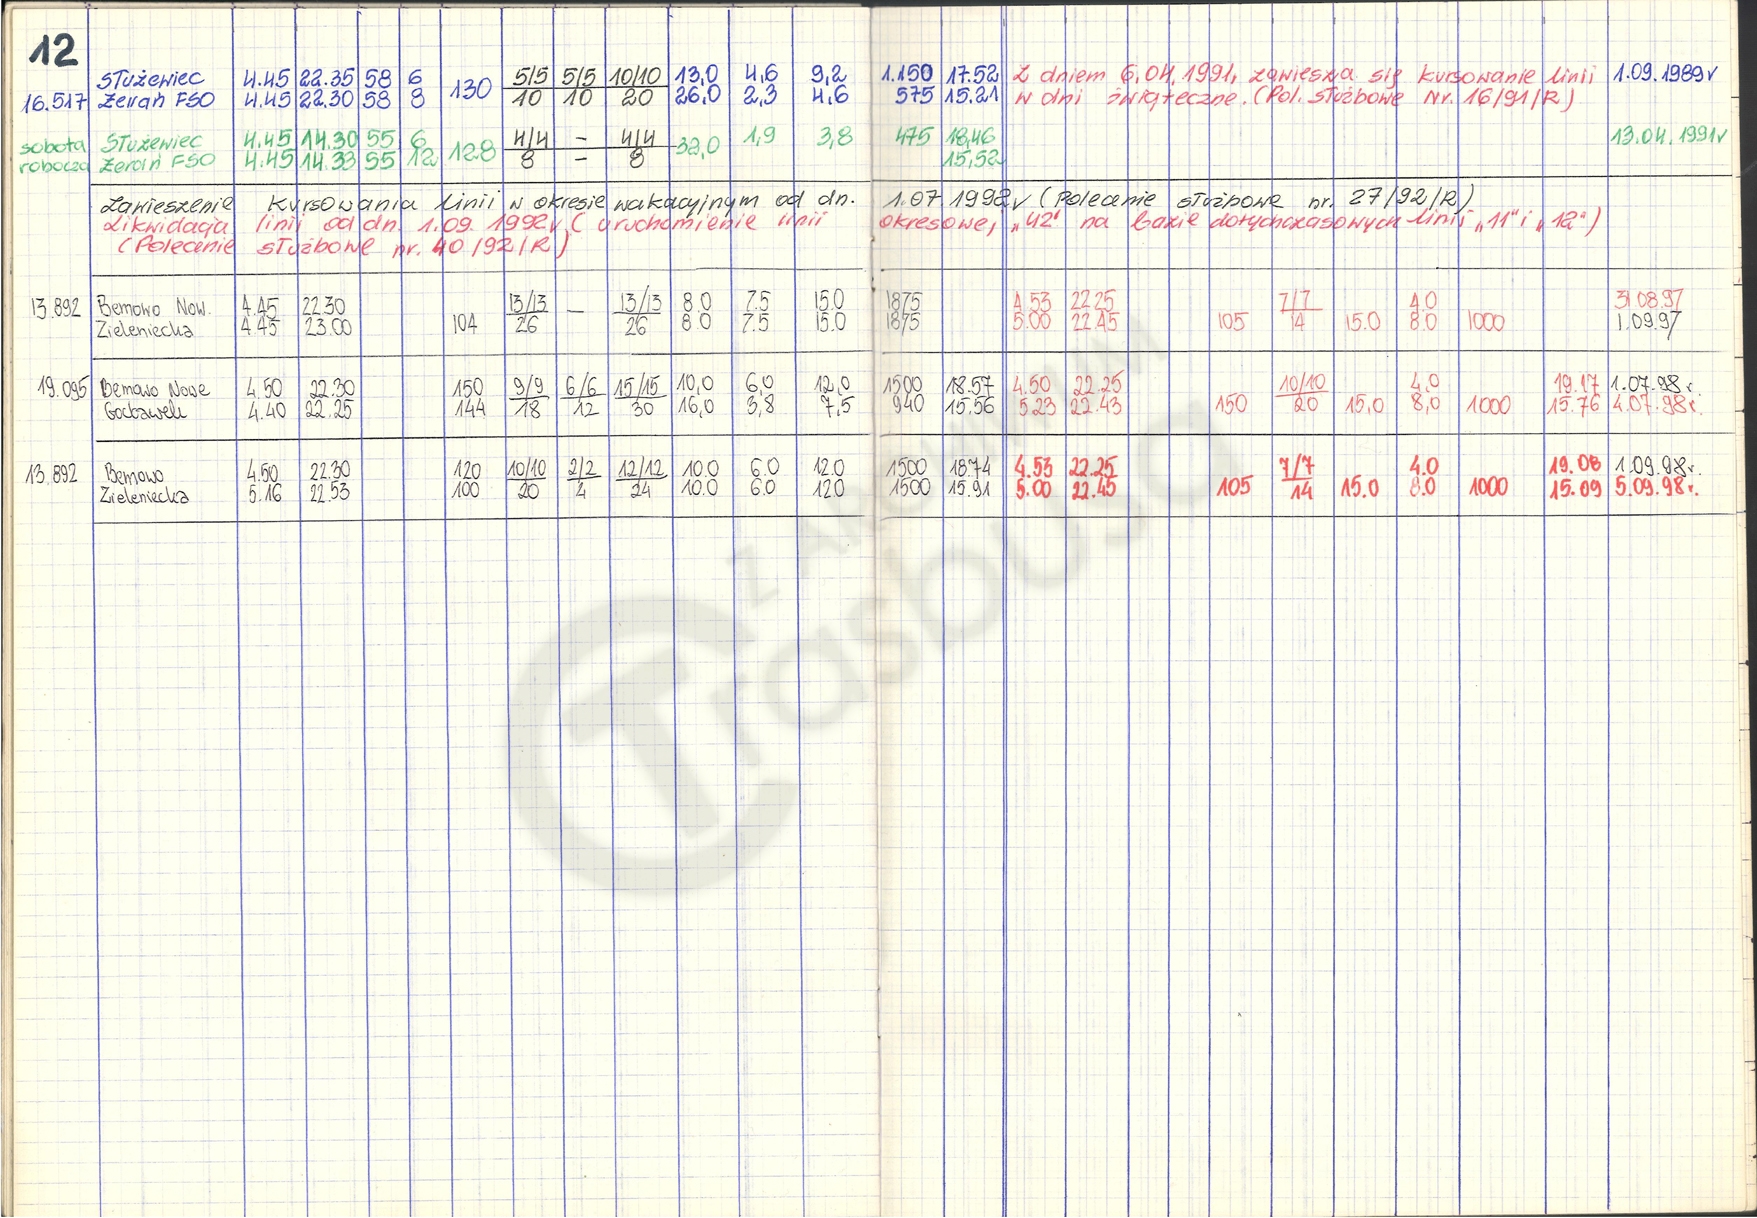 12
Służewiec 4.45 22.35 58 6 130 5/5 5/5 10/10 13,0 4,6 9,2 1.150 17.52 Z dniem 6.04.1991r zawiesza się kursowanie linii 1.09.1989r
16.517 Żerań FSO 4.45 22.30 58 8 10 10 20 26,0 2,3 4,6 575 15.21 w dni świąteczne. (Pol. służbowe Nr. 16/91/R)
sobota Służewiec 4.45 14.30 55 6 128 4/4 – 4/4 32,0 1,9 3,8 475 18,46 13.04.1991r
robocza Żerań FSO 4.45 14.33 55 12 8 – 8 15,52
Zawieszenie kursowania linii w okresie wakacyjnym od dn. 1.07 1992r (Polecenie służbowe nr. 27/92/R)
Likwidacja linii od dn. 1.09 1992r ( uruchomienie linii okresowej „42" na bazie dotychczasowych linii „11" i „12")
(Polecenie służbowe nr. 40/92/R)
13.892 Bemowo Now. 4.45 22.30 13/13 — 13/13 8.0 7.5 15.0 1875 4.53 22.25 7/7 4.0 31.08.97
Zieleniecka 4.45 23.00 104 26 26 8.0 7.5 15.0 1875 5.00 22.45 105 14 15.0 8.0 1000 1.09.97
19.095 Bemowo Nowe 4.50 22.30 150 9/9 6/6 15/15 10,0 6,0 12,0 1500 18.57 4.50 22.25 10/10 4.0 19.17 1.07.98r.
Gocławek 4.40 22.25 144 18 12 30 16,0 3,8 7,5 940 15.56 5.23 22.43 150 20 15,0 8,0 1000 15.76 4.07.98r.
13.892 Bemowo 4.50 22.30 120 10/10 2/2 12/12 10.0 6.0 12.0 1500 18.74 4.53 22.25 7/7 4.0 19.08 1.09.98r.
Zieleniecka 5.16 22.53 100 20 4 24 10.0 6.0 12.0 1500 15.91 5.00 22.45 105 14 15.0 8.0 1000 15.09 5.09.98r.
Z ARCHIWUM
Trasbusa